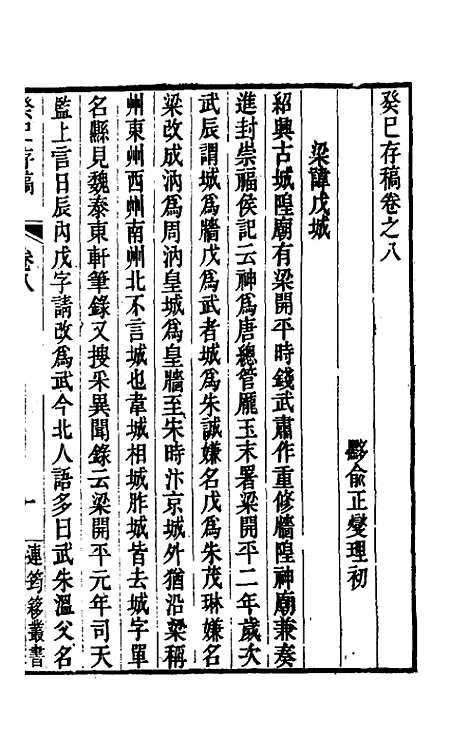 癸巳存稿卷之八
黟俞正燮理初
梁諱戊城
紹興古城隍廟有梁開平時錢武肅作重修牆隍神廟兼奏
進封崇福侯記云神爲唐總管龎玉末署梁開平二年歲次
武辰謂城爲牆戊爲武者城爲朱誠嫌名戊爲朱茂琳嫌名
梁改成汭爲周汭皇城爲皇牆至宋時汴京城外猶沿梁稱
州東州西州南州北不言城也韋城相城胙城皆去城字單
名縣見魏泰東軒筆錄又搜采異聞錄云梁開平元年司天
監上言日辰內戊字請改爲武今北人語多曰武朱溫父名
癸巳存稿
卷八
一
連筠簃叢書